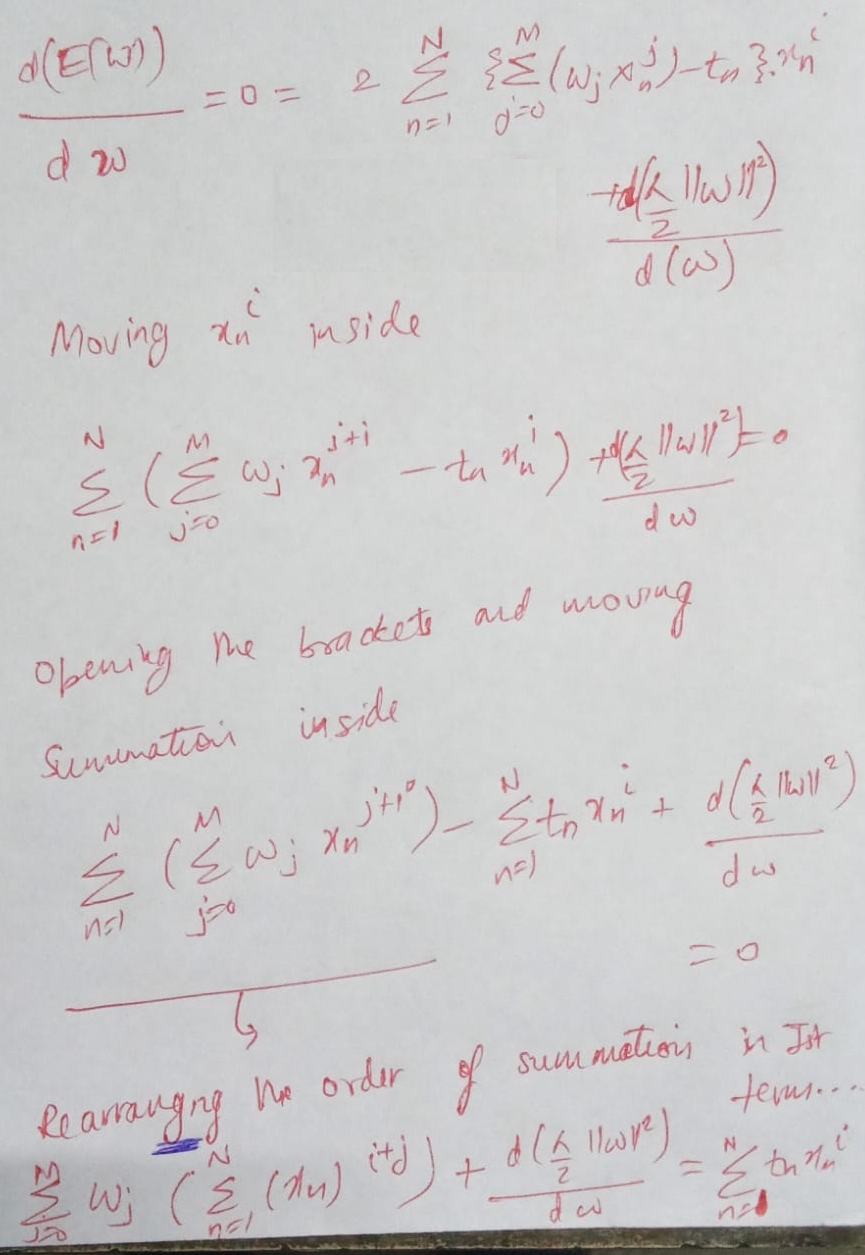 d(E(w)) / dw = 0 = 2 Σ_{n=1}^{N} {Σ_{j=0}^{M} (w_j x_n^j) - t_n}. x_n^i
+ d(λ/2 ||w||²) / d(w)
Moving x_n^i inside
Σ_{n=1}^{N} (Σ_{j=0}^{M} w_j x_n^{j+i} - t_n x_n^i) + d(λ/2 ||w||²) / dw = 0
Opening the brackets and moving
Summation inside
Σ_{n=1}^{N} (Σ_{j=0}^{M} w_j x_n^{j+i}) - Σ_{n=1}^{N} t_n x_n^i + d(λ/2 ||w||²) / dw
= 0
Rearranging the order of summation in Ist
term...
Σ_{j=0}^{M} w_j (Σ_{n=1}^{N} (x_n)^{i+j}) + d(λ/2 ||w||²) / dw = Σ_{n=1}^{N} t_n x_n^i